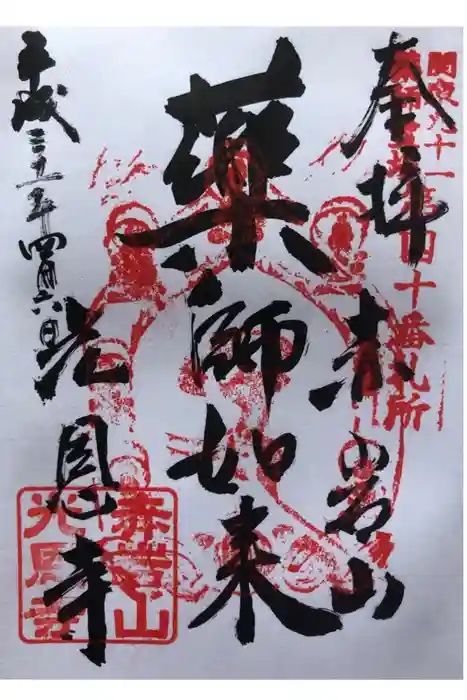 関東九十一
薬師霊場第四十番札所
奉拝
赤岩山
薬師如来
光恩寺
平成三十一年四月六日
赤岩山
光恩寺